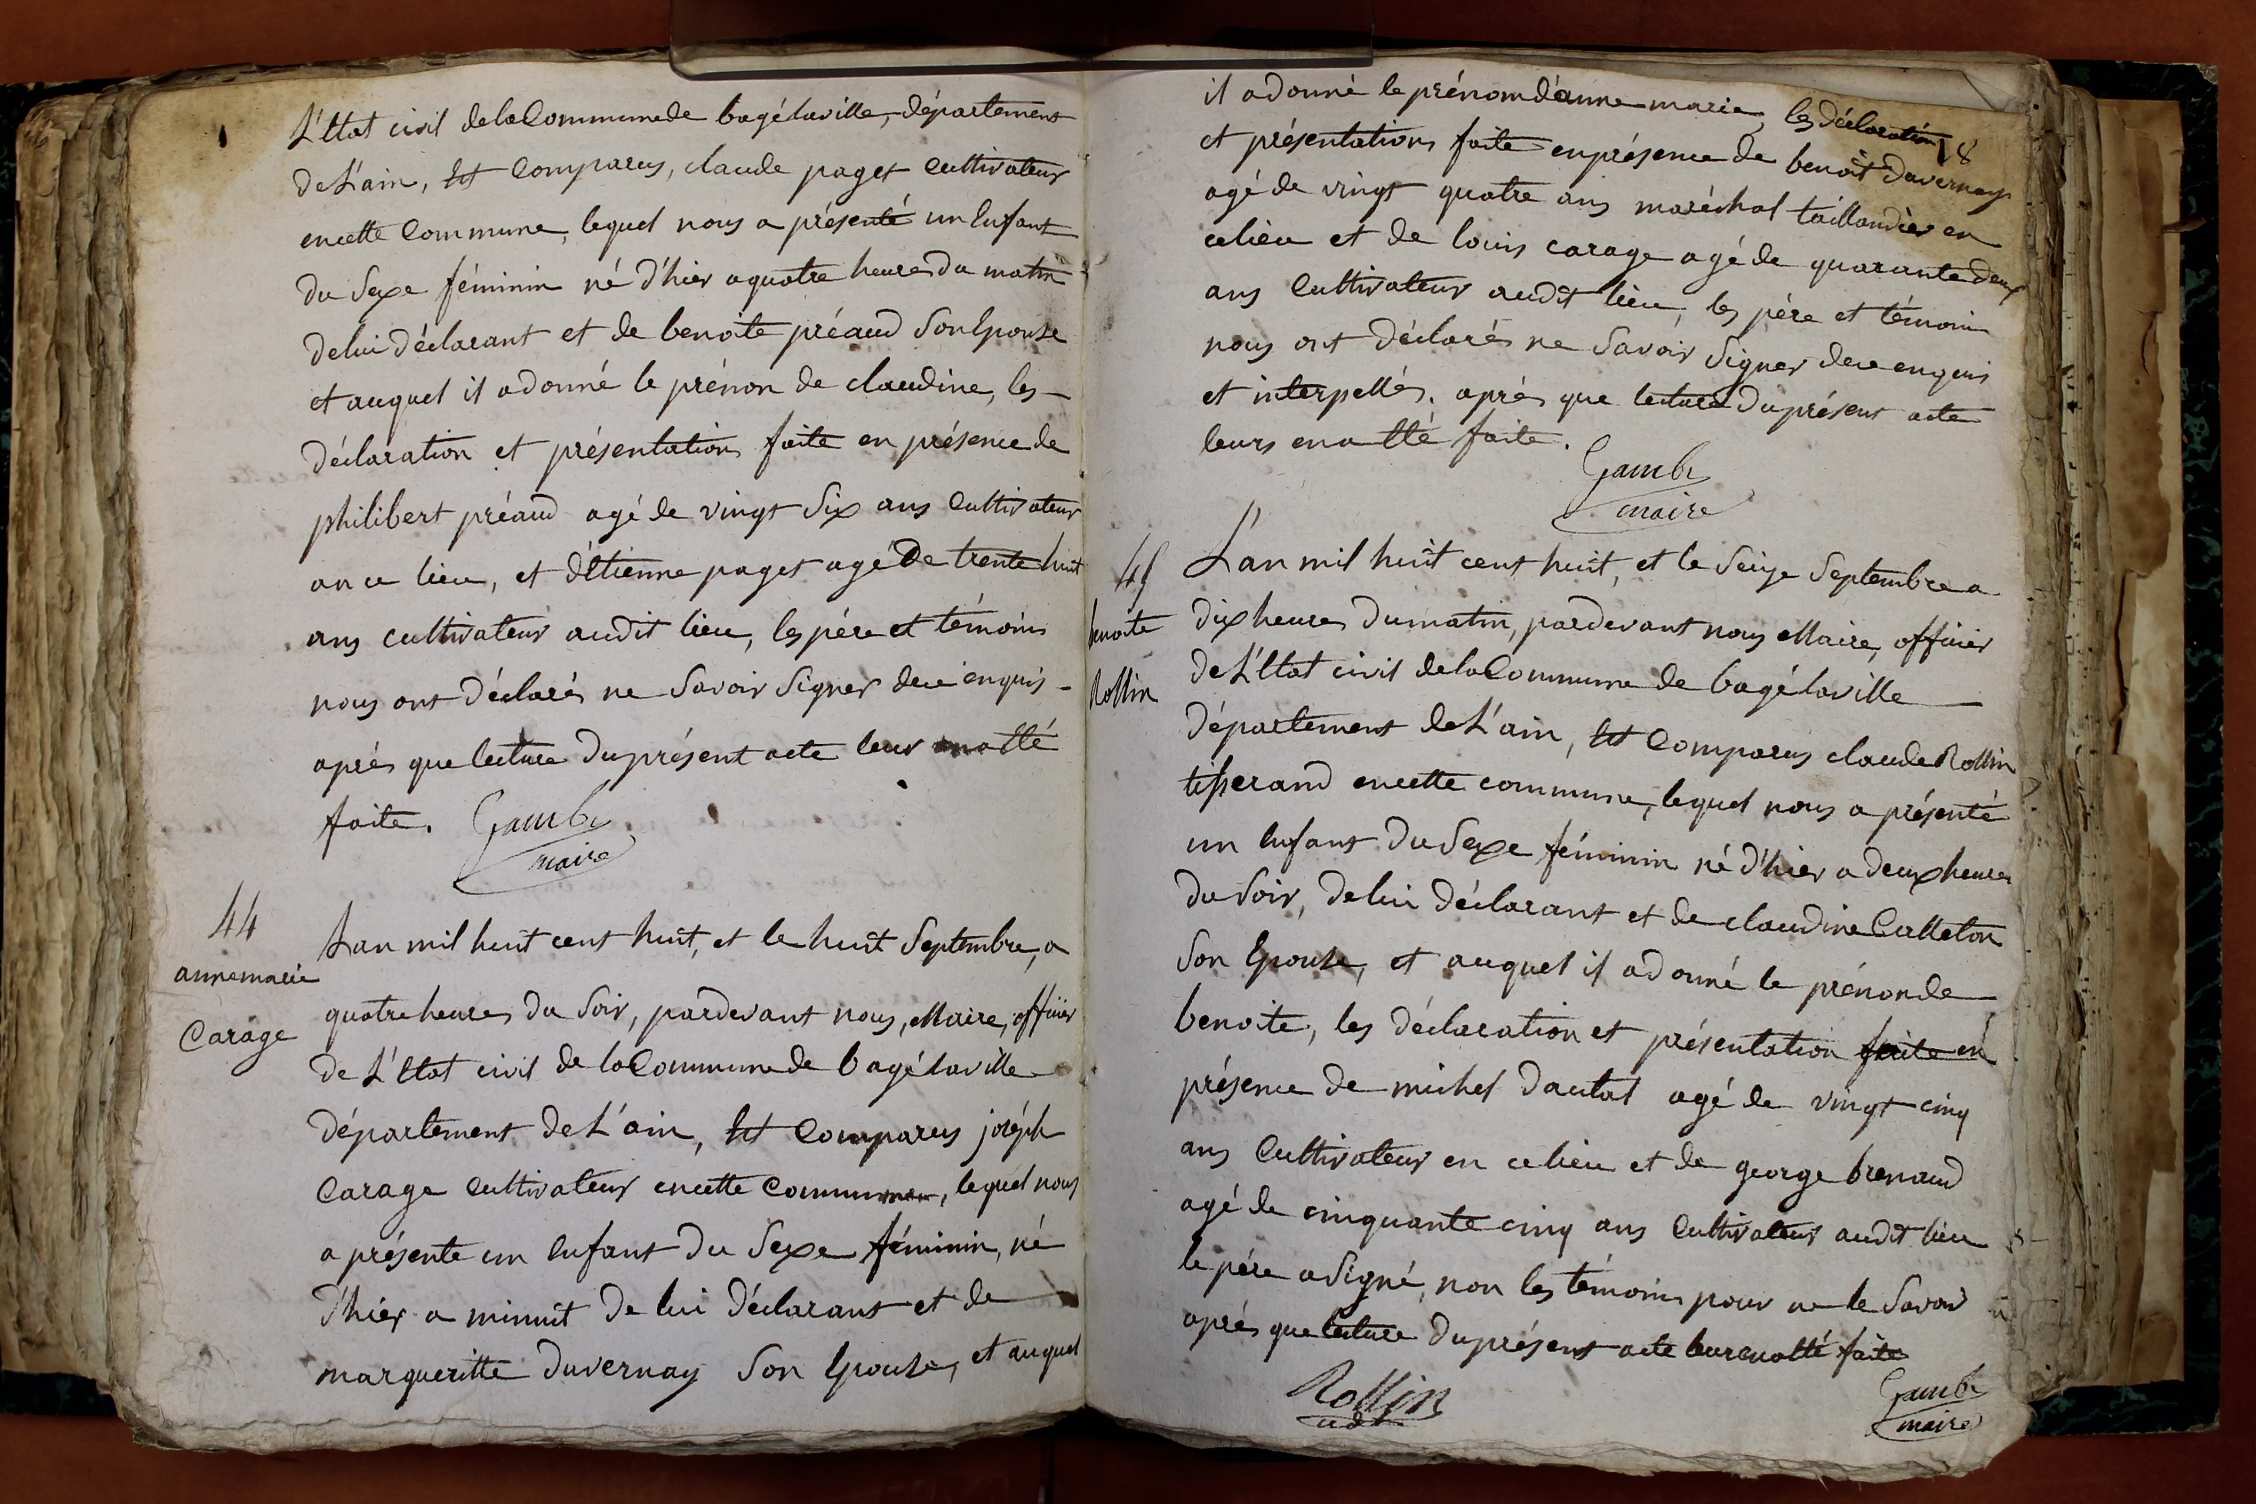 L'Etat civil de la Commune de bagé laville, département
de L'ain, Est Comparus, claude paget cultivateur
en cette Commune, lequel nous a présenté un Enfant
du Sexe féminin né d'hier a quatre heures du matin
de lui déclarant et de benoite préaud Son Epouse
et auquel il a donné le prénon de claudine, les
déclaration et présentation faite en présence de
philibert préaud agé de vingt Six ans Cultivateur
an ce lieu, et d'Etienne paget agé de trente huit
ans cultivateur audit lieu, les pére et témoins
nous ont déclarés ne Savoir Signer de ce enquis
aprés que lecture du présent acte leur en a Eté
faite. Gambi
maire
44
anne marie
Carage
Lan mil huit cent huit, et le huit Septembre, a
quatre heures du Soir, pardevant nous, Maire, officier
de L'Etat civil de la Commune de bagé laville
département de L'ain, Est Comparus joséph
Carage Cultivateur en cette Commune, lequel nous
a présenté un Enfant du Sexe féminin, né
d'hier a minuit de lui déclarant et de
margueritte duvernay Son Epouse, et auquel
18
il a donné le prénom d'anne marie, les déclaration
et présentation faite en présence de benoit duvernay
agé de vingt quatre ans maréchal taillandier en
ce lieu et de louis carage agé de quarante deux
ans Cultivateur audit lieu, les pére et témoin
nous ont déclarés ne Savoir Signer de ce enquis
et interpellés. aprés que lecture du présent acte
leurs en a Eté faite.
Gambi
maire
45
benoite
Rollin
L'an mil huit cent huit, et le Seize Septembre a
dix heures du matin, pardevant nous Maire, officier
de L'Etat civil de la Commune de bagé laville
département de L'ain, Est Comparus claude Rollin
tisserand en cette commune, lequel nous a présenté
un Enfant du Sexe féminin né d'hier a deux heures
du Soir, de lui déclarant et de claudine Catteton
Son Epouse, et auquel il a donné le prénon de
benoite, les déclaration et présentation faite en
présence de michel dautal agé de vingt cinq
ans Cultivateur en ce lieu et de george brenaud
agé de cinquante cinq ans Cultivateur audit lieu
le pére a Signé, non les témoins pour ne le Savoir
aprés que lecture du présent acte leur en a Eté faite
Rollin
Gambi
maire